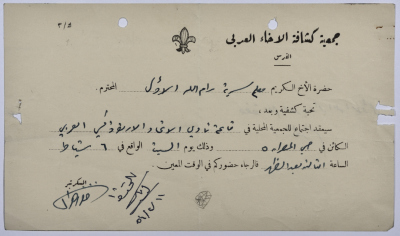 ٣/٥
جمعية كشافة الاخاء العربي
القدس
حضرة الأخ الكريم معلم سرية رام الله الاولى المحترم
تحية كشفية وبعد ،
سيعقد اجتماع للجمعية المحلية في قاعة نادي الاتحاد الارثوذكسي العربي
الكائن في حي المصرارة وذلك يوم السبت الواقع في ٦ شباط
الساعة الثالثة بعد الظهر فالرجاء حضوركم في الوقت المعين .
السكرتير